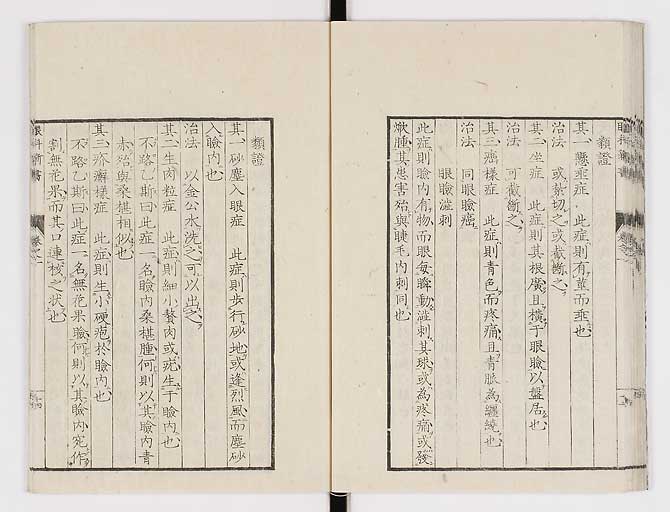 類證
其一懸垂症 此症則有莖而垂也
治法 或紮切之或截斷之
其二坐症 此症則其根廣且橫于眼瞼以盤居也
治法 可截斷之
其三癌樣症 此症則青色而疼痛且青脈為纏繞也
治法 同眼瞼癌
眼瞼澁刺
此症則瞼內有物而眼每瞬動澁刺其珠或為疼痛或發
焮腫其患害殆與睫毛內刺同也
類證
其一砂塵入眼症 此症則步行砂地或逢烈風而塵砂
入瞼內也
治法 以金公水洗之可以出之
其二生肉粒症 此症則細小贅肉或疣生于瞼內也
不路乙斯曰此症一名瞼內桑椹腫何則以其瞼內青
赤殆與桑椹相似也
其三疥癬樣症 此症則生小硬疱於瞼內也
不路乙斯曰此症一名無花果瞼何則以其瞼內宛作
割無花果而其口連稜之狀也
眼科新書